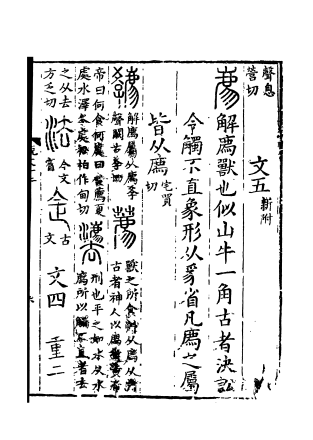 聲息
營切
文五 新附
解廌獸也似山牛一角古者決訟
令觸不直象形从豸省凡廌之屬
皆从廌 宅買
切
解廌屬从廌孝
聲闕古孝切
獸之所食艸从廌从艸
古者神人以廌遺黃帝
帝曰何食何處曰食薦夏
處水澤冬處松柏作甸切
刑也平之如水从水
廌所以觸不直者去
之从去
方乏切
今文
省
古
文
文四 重二